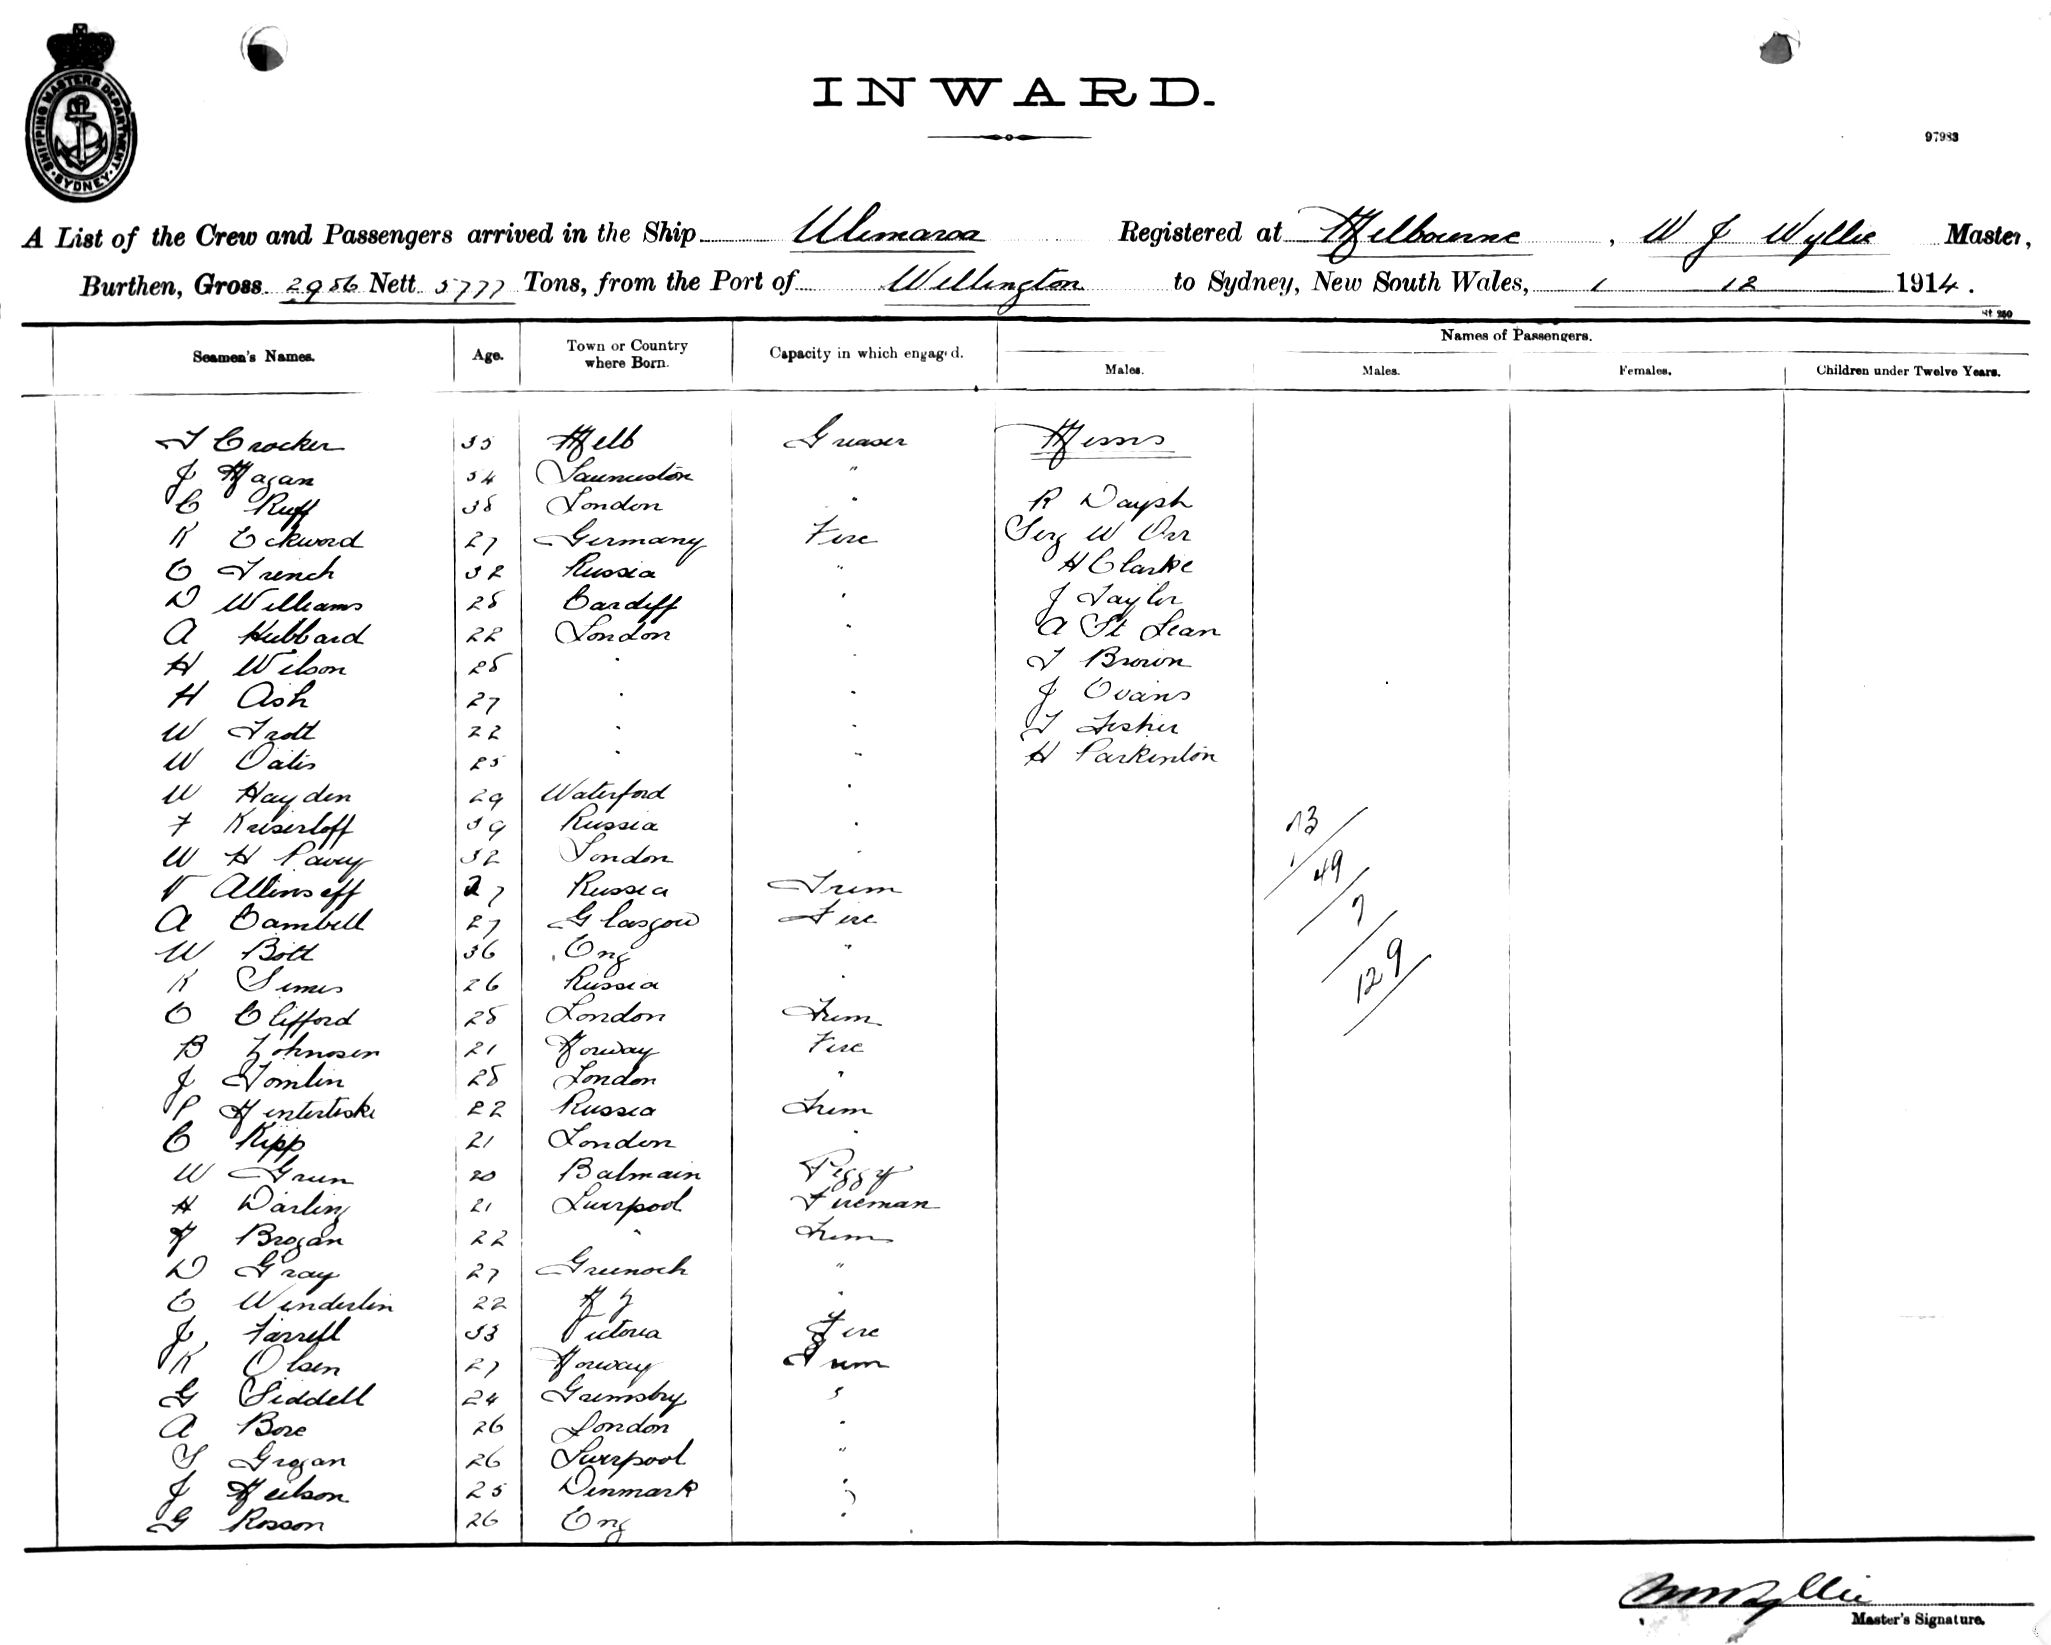 SHIPPING MASTERS DEPARTMENT
SYDNEY
INWARD.
97983
A List of the Crew and Passengers arrived in the Ship Ulimaroa Registered at Melbourne, W J Wyllie Master,
Burthen, Gross 2986 Nett 5777 Tons, from the Port of Wellington to Sydney, New South Wales, 1 12 1914.
St 250
Seamen's Names. Age. Town or Country where Born. Capacity in which engaged. Names of Passengers.
Males. Males. Females. Children under Twelve Years.
T Crocker 35 Melb Greaser Messrs
J Hagan 34 "
C Ruff 38 London " R Daysh
K Eckword 27 Germany Fire W Orr
O French 32 Russia " H Clarke
D Williams 28 Cardiff " J Taylor
A Hubbard 22 London " A St Lean
H Wilson 28 " " T Brown
H Ash 27 " " J Ovans
W Trott 22 " " T Fisher
W Oatis 25 " " H Parkinton
W Hayden 29 Waterford "
F Kriserloff 39 Russia "
W H Pavey 32 London "
V Allinseff 27 Russia Trim
A Cambell 27 Glasgow Fire
W Bott 36 Eng "
K Simes 26 Russia "
O Clifford 28 London Trim
B Johnosen 21 Norway Fire
J Tomlin 28 London "
P 22 Russia Trim
C Kipp 21 London "
W Grun 20 Balmain Peggy
H Darling 21 Liverpool Fireman
M Brogan 22 " Trim
D Gray 27 Greenock "
E Winderlin 22 N Z "
J Farrell 33 Victoria Fire
K Olsen 27 Norway Trim
G Siddell 24 Grimsby "
A Bore 26 London "
T Grogan 26 Liverpool "
J Neilson 25 Denmark "
G Rosson 26 Eng "
73
49
7
129
W J Wyllie
Master's Signature.